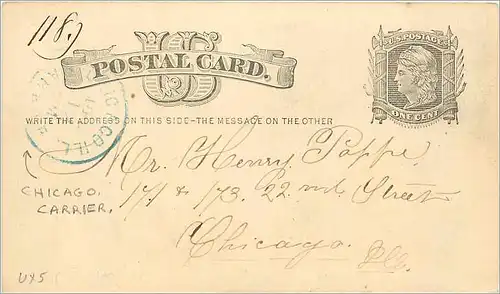 118.
U.S. POSTAGE
US
POSTAL CARD.
ONE CENT
WRITE THE ADDRESS ON THIS SIDE-THE MESSAGE ON THE OTHER
Mr. Henry Poppe
171 & 173. 22nd Street
Chicago.
Ill.
CHICAGO.
CARRIER.
UX5